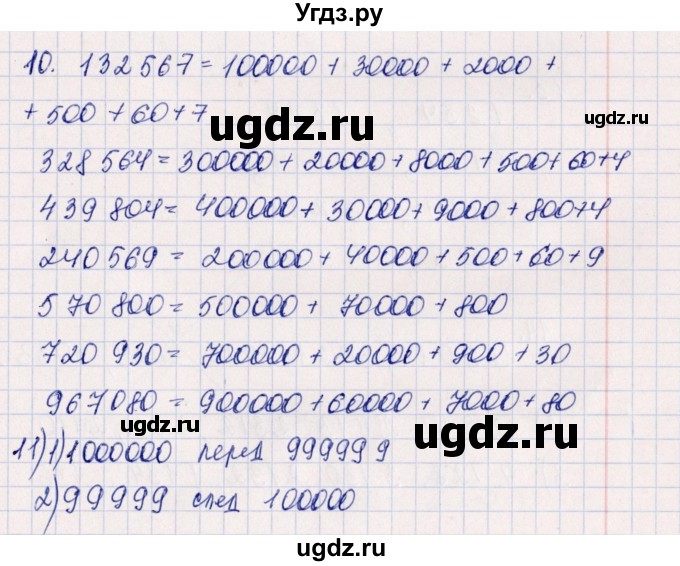 Угдз.ру
10. 132 567 = 100000 + 30000 + 2000 +
+ 500 + 60 + 7
ugdz.ru
ugdz.ru
328 564 = 300000 + 20000 + 8000 + 500 + 60 + 4
439 804 = 400000 + 30000 + 9000 + 800 + 4
240 569 = 200000 + 40000 + 500 + 60 + 9
570 800 = 500000 + 70000 + 800
720 930 = 700000 + 20000 + 900 + 30
967080 = 900000 + 60000 + 7000 + 80
11) 1) 1000000 перед 999999
ugdz.ru
ugdz.ru
2) 99999 след 100000
ugdz.ru